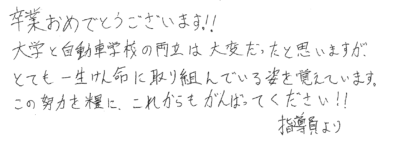 卒業おめでとうございます!!
大学と自動車学校の両立は大変だったと思いますが、
とても一生けん命に取り組んでいる姿を覚えています。
この努力を糧に、これからもがんばってください!!
指導員より